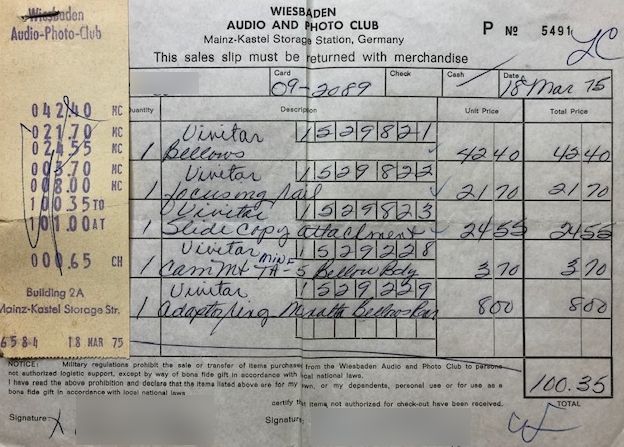 Wiesbaden
Audio-Photo-Club
042.40 MC
021.70 MC
024.55 MC
003.70 MC
008.00 MC
100.35 TO
101.00 AT
000.65 CH
Building 2A
Mainz-Kastel Storage Str.
6584 18 MAR 75
WIESBADEN
AUDIO AND PHOTO CLUB
Mainz-Kastel Storage Station, Germany
P No 5491
This sales slip must be returned with merchandise
Card 09-2089 Check Cash Date 18 Mar 75
Quantity Description Unit Price Total Price
Vivitar 1529821
1 Bellows 42 40 42 40
Vivitar 1529822
1 focusing rail 21 70 21 70
Vivitar 1529823
1 Slide copy attachment 24 55 24 55
Vivitar 1529228
1 Cam Mt TA-5 Bellow Bdy 3 70 3 70
Vivitar 1529239
1 Adaptor ring Minolta Bellows 8 00 8 00
NOTICE: Military regulations prohibit the sale or transfer of items purchased from the Wiesbaden Audio and Photo Club to persons
not authorized logistic support, except by way of bona fide gift in accordance with local national laws.
I have read the above prohibition and declare that the items listed above are for my own, or my dependents, personal use or for use as a
bona fide gift in accordance with local national laws
100.35
TOTAL
certify that items not authorized for check-out have been received.
Signature X Signature